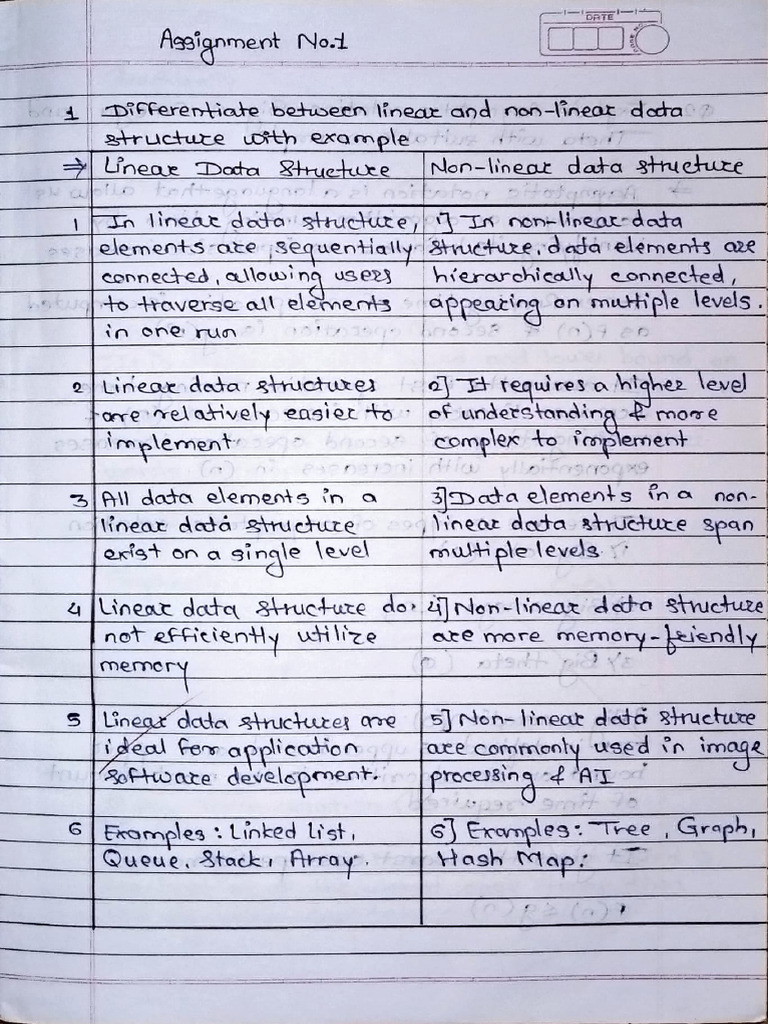 Assignment No.1
DATE
1 Differentiate between linear and non-linear data
structure with example
⇒ Linear Data Structure Non-linear data structure
1 In linear data structure, 1] In non-linear data
elements are sequentially structure, data elements are
connected, allowing users hierarchically connected,
to traverse all elements appearing on multiple levels.
in one run
2 Linear data structures 2] It requires a higher level
are relatively easier to of understanding & more
implement. complex to implement
3 All data elements in a 3] Data elements in a non-
linear data structure linear data structure span
exist on a single level multiple levels.
4 Linear data structure do 4] Non-linear data structure
not efficiently utilize are more memory-friendly
memory
5 Linear data structures are 5] Non-linear data structure
ideal for application are commonly used in image
software development. processing & AI
6 Examples: Linked List, 6] Examples: Tree, Graph,
Queue, Stack, Array. Hash Map.